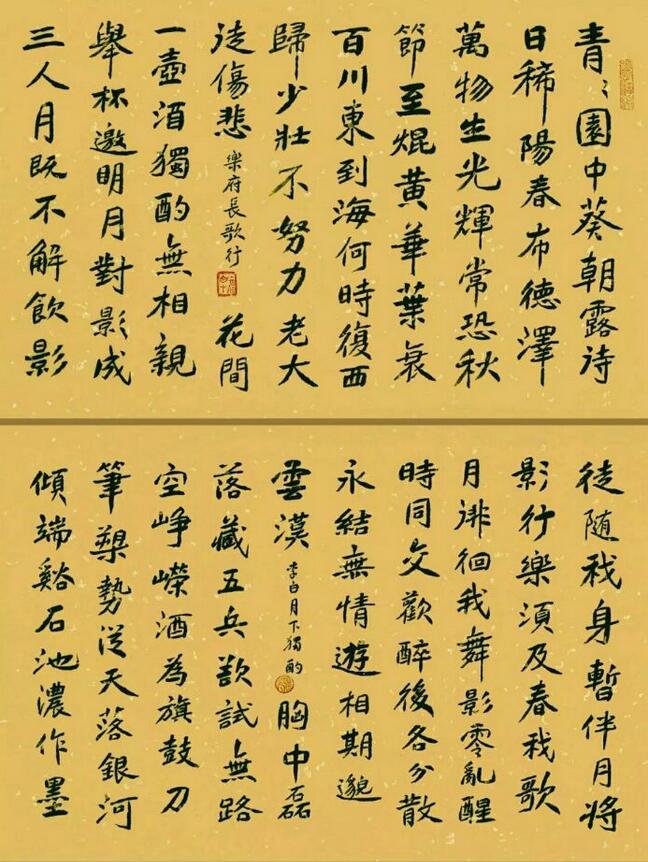 青〻園中葵朝露待
日稀陽春布德澤
萬物生光輝常恐秋
節至焜黄華葉衰
百川東到海何時復西
歸少壯不努力老大
徒傷悲 樂府長歌行 花間
一壺酒獨酌無相親
舉杯邀明月對影成
三人月既不解飲影
徒隨我身暫伴月將
影行樂須及春我歌
月徘徊我舞影零亂醒
時同交歡醉後各分散
永結無情遊相期邈
雲漢 李白月下獨酌 胸中磊
落藏五兵欲試無路
空崢嶸酒為旗鼓刀
筆槊勢從天落銀河
傾端谿石池濃作墨